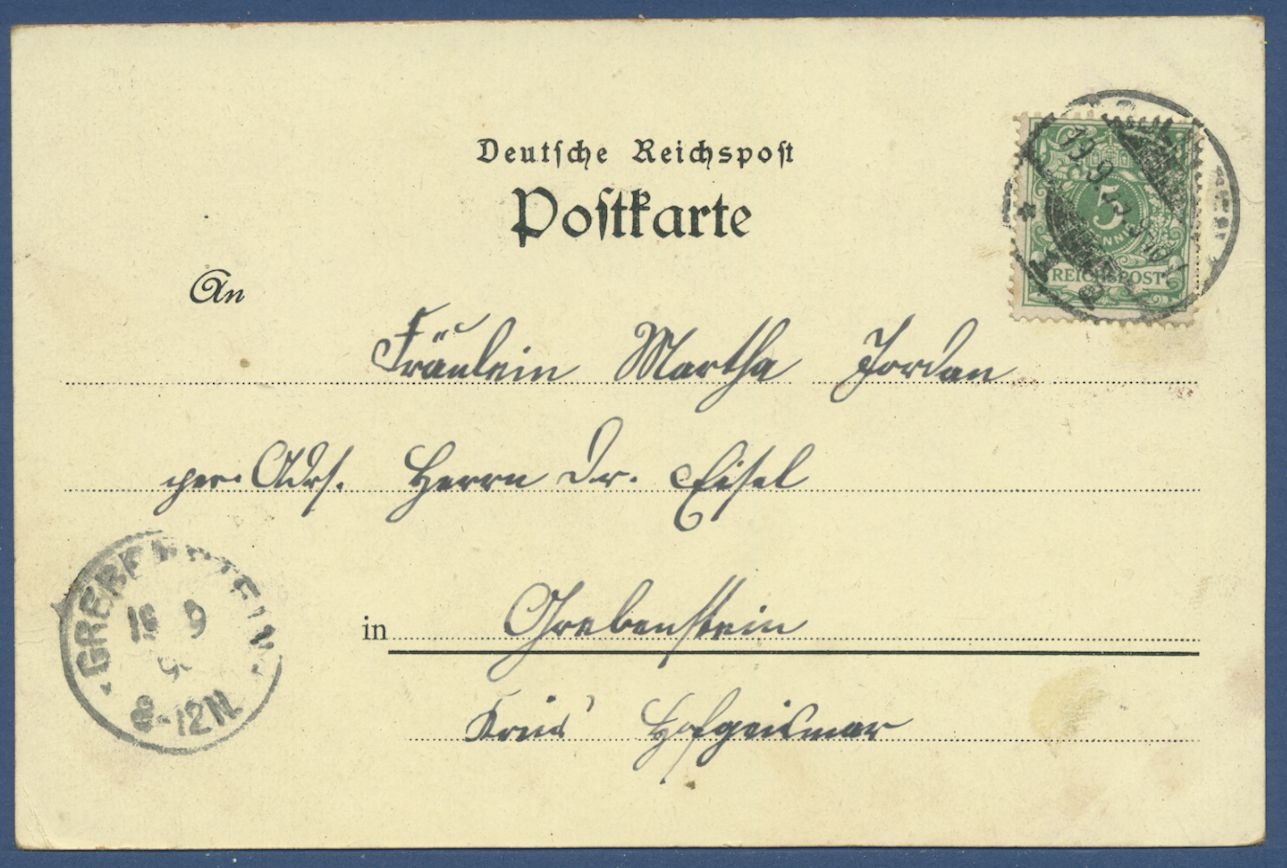 Deutsche Reichspost
Postkarte
An
5
REICHSPOST
19 9
Fräulein Martha Jordan
per. Adrs. Herrn Dr. Eisel
in Grebenstein
Kreis Hofgeismar
GREBENSTEIN
9
8-12N.